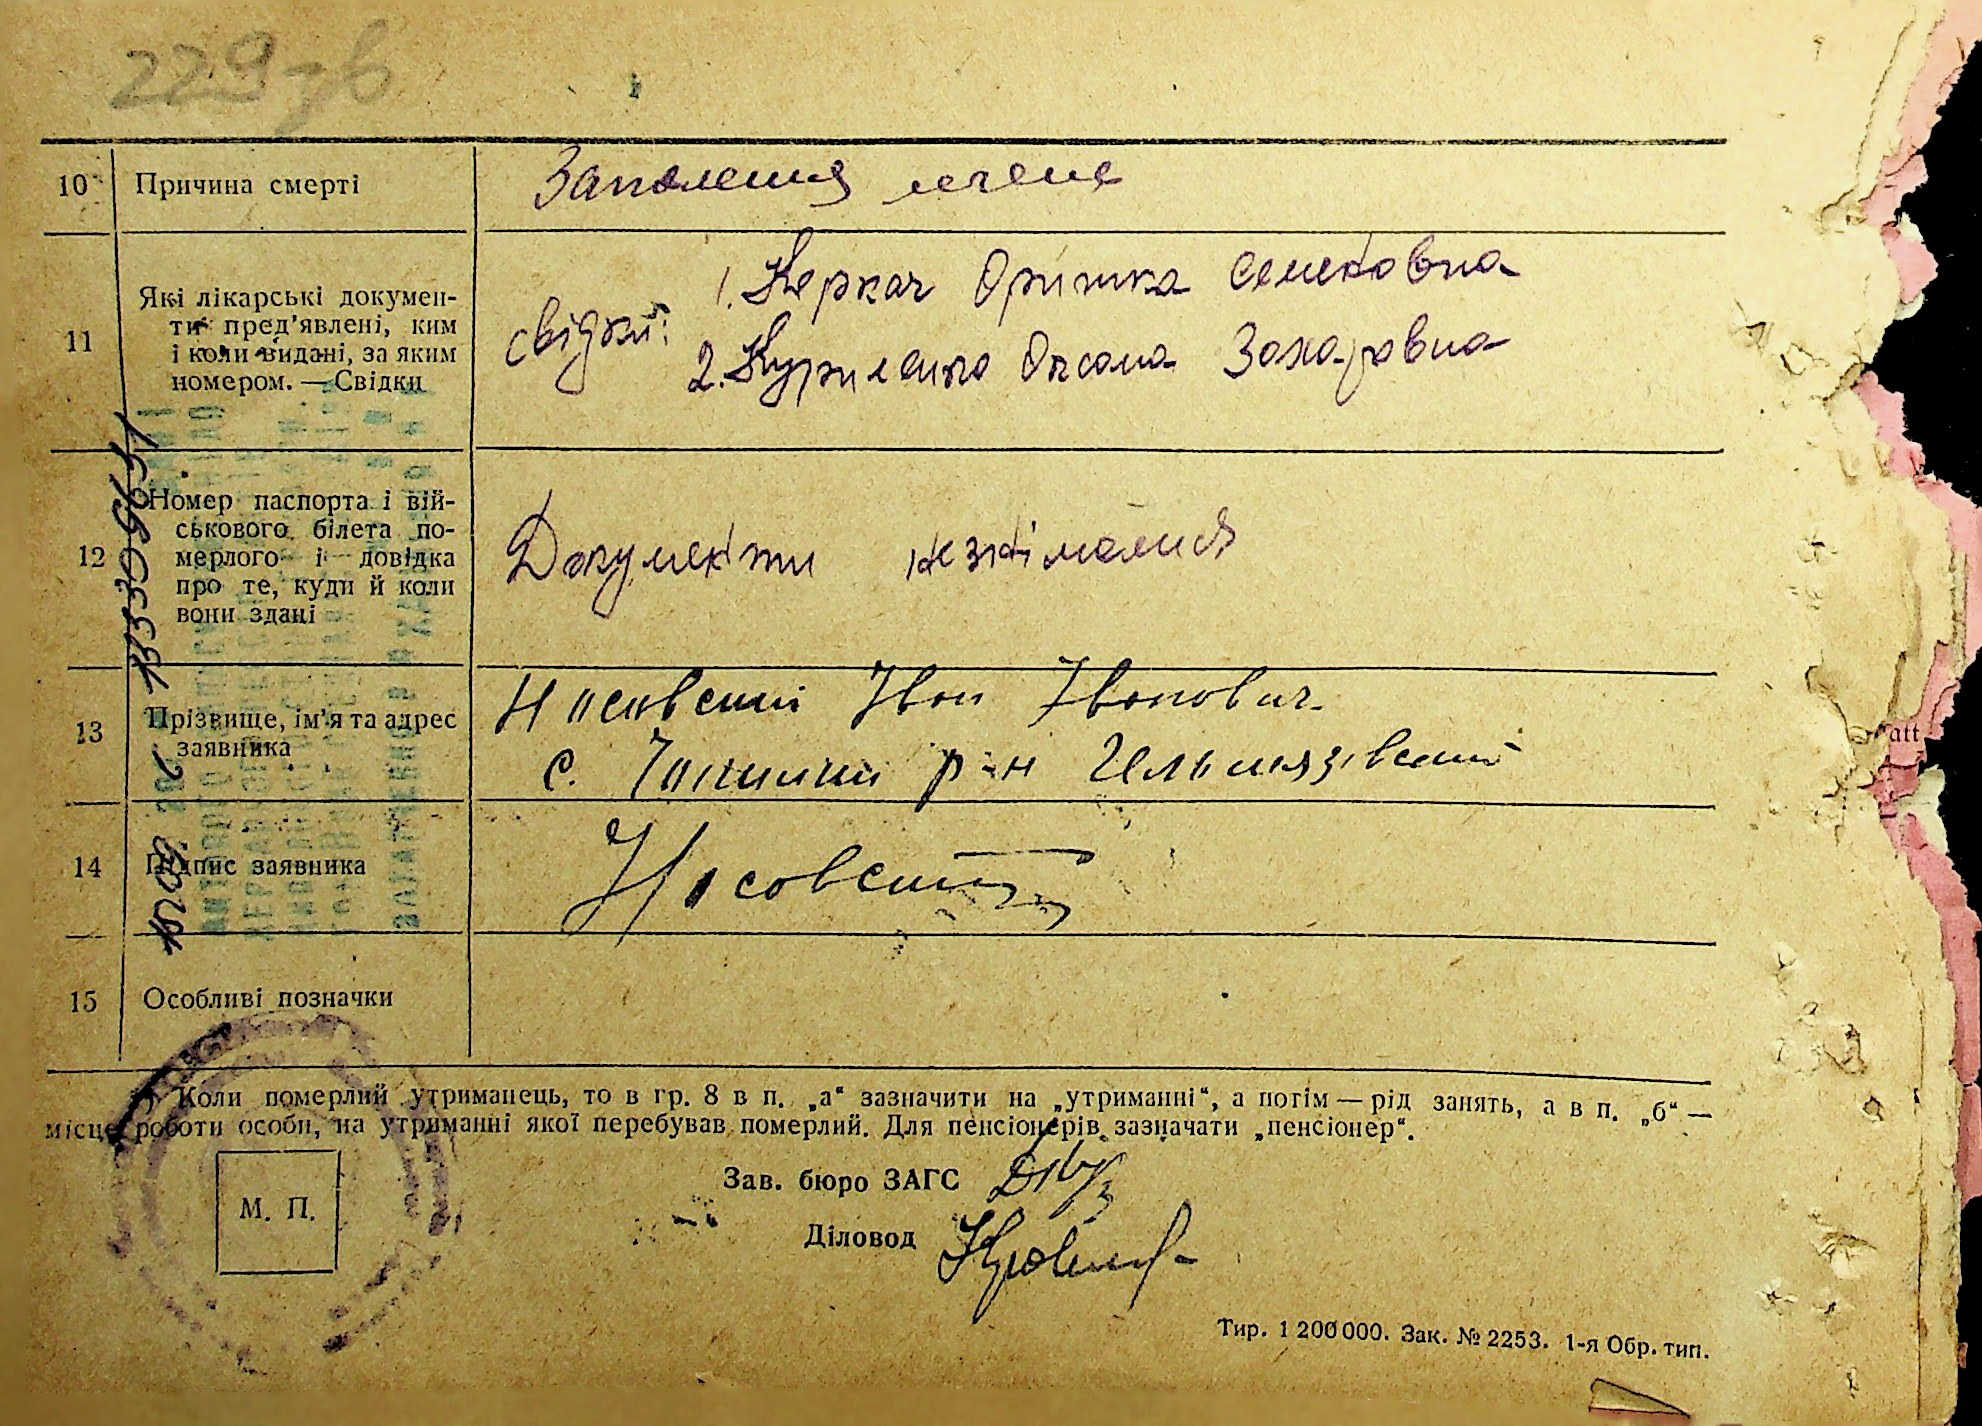 229 зв
10 Причина смерті Запалення легень
11 Які лікарські докумен-
ти пред'явлені, ким
і коли видані, за яким
номером. — Свідки
свідки:
1. Керкач Оришка Семеновна
2. Куриленко Оксана Захаровна
12 Номер паспорта і вій-
ськового білета по-
мерлого і довідка
про те, куди й коли
вони здані
Документи незнімалися
13 Прізвище, ім'я та адрес
заявника
Носовский Iван Iванович
с. р-н Гельмязівский
14 Підпис заявника Носовский
15 Особливі позначки
Коли померлий утриманець, то в гр. 8 в п. „а“ зазначити на „утриманні“, а потім — рід занять, а в п. „б“ —
місце роботи особи, на утриманні якої перебував померлий. Для пенсіонерів зазначати „пенсіонер“.
Зав. бюро ЗАГС
М. П.
Діловод
Тир. 1 200 000. Зак. № 2253. 1-я Обр. тип.
att